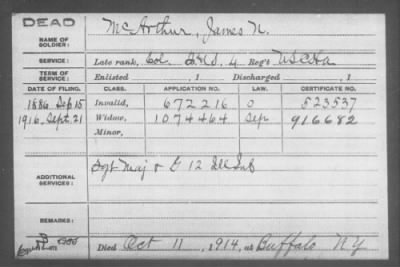 DEAD
NAME OF SOLDIER: McArthur, James N.
SERVICE: Late rank, Col. 4 Reg't U S C H A
TERM OF SERVICE: Enlisted , 1 Discharged , 1
DATE OF FILING. CLASS. APPLICATION NO. LAW. CERTIFICATE NO.
1886 Sep 15 Invalid, 672216 O 523537
1916, Sept. 21 Widow, 1074464 Sep 916682
Minor,
ADDITIONAL SERVICES: Sgt Maj & G 12 Ill Inf
REMARKS:
Died Oct 11, 1914, at Buffalo N.Y.